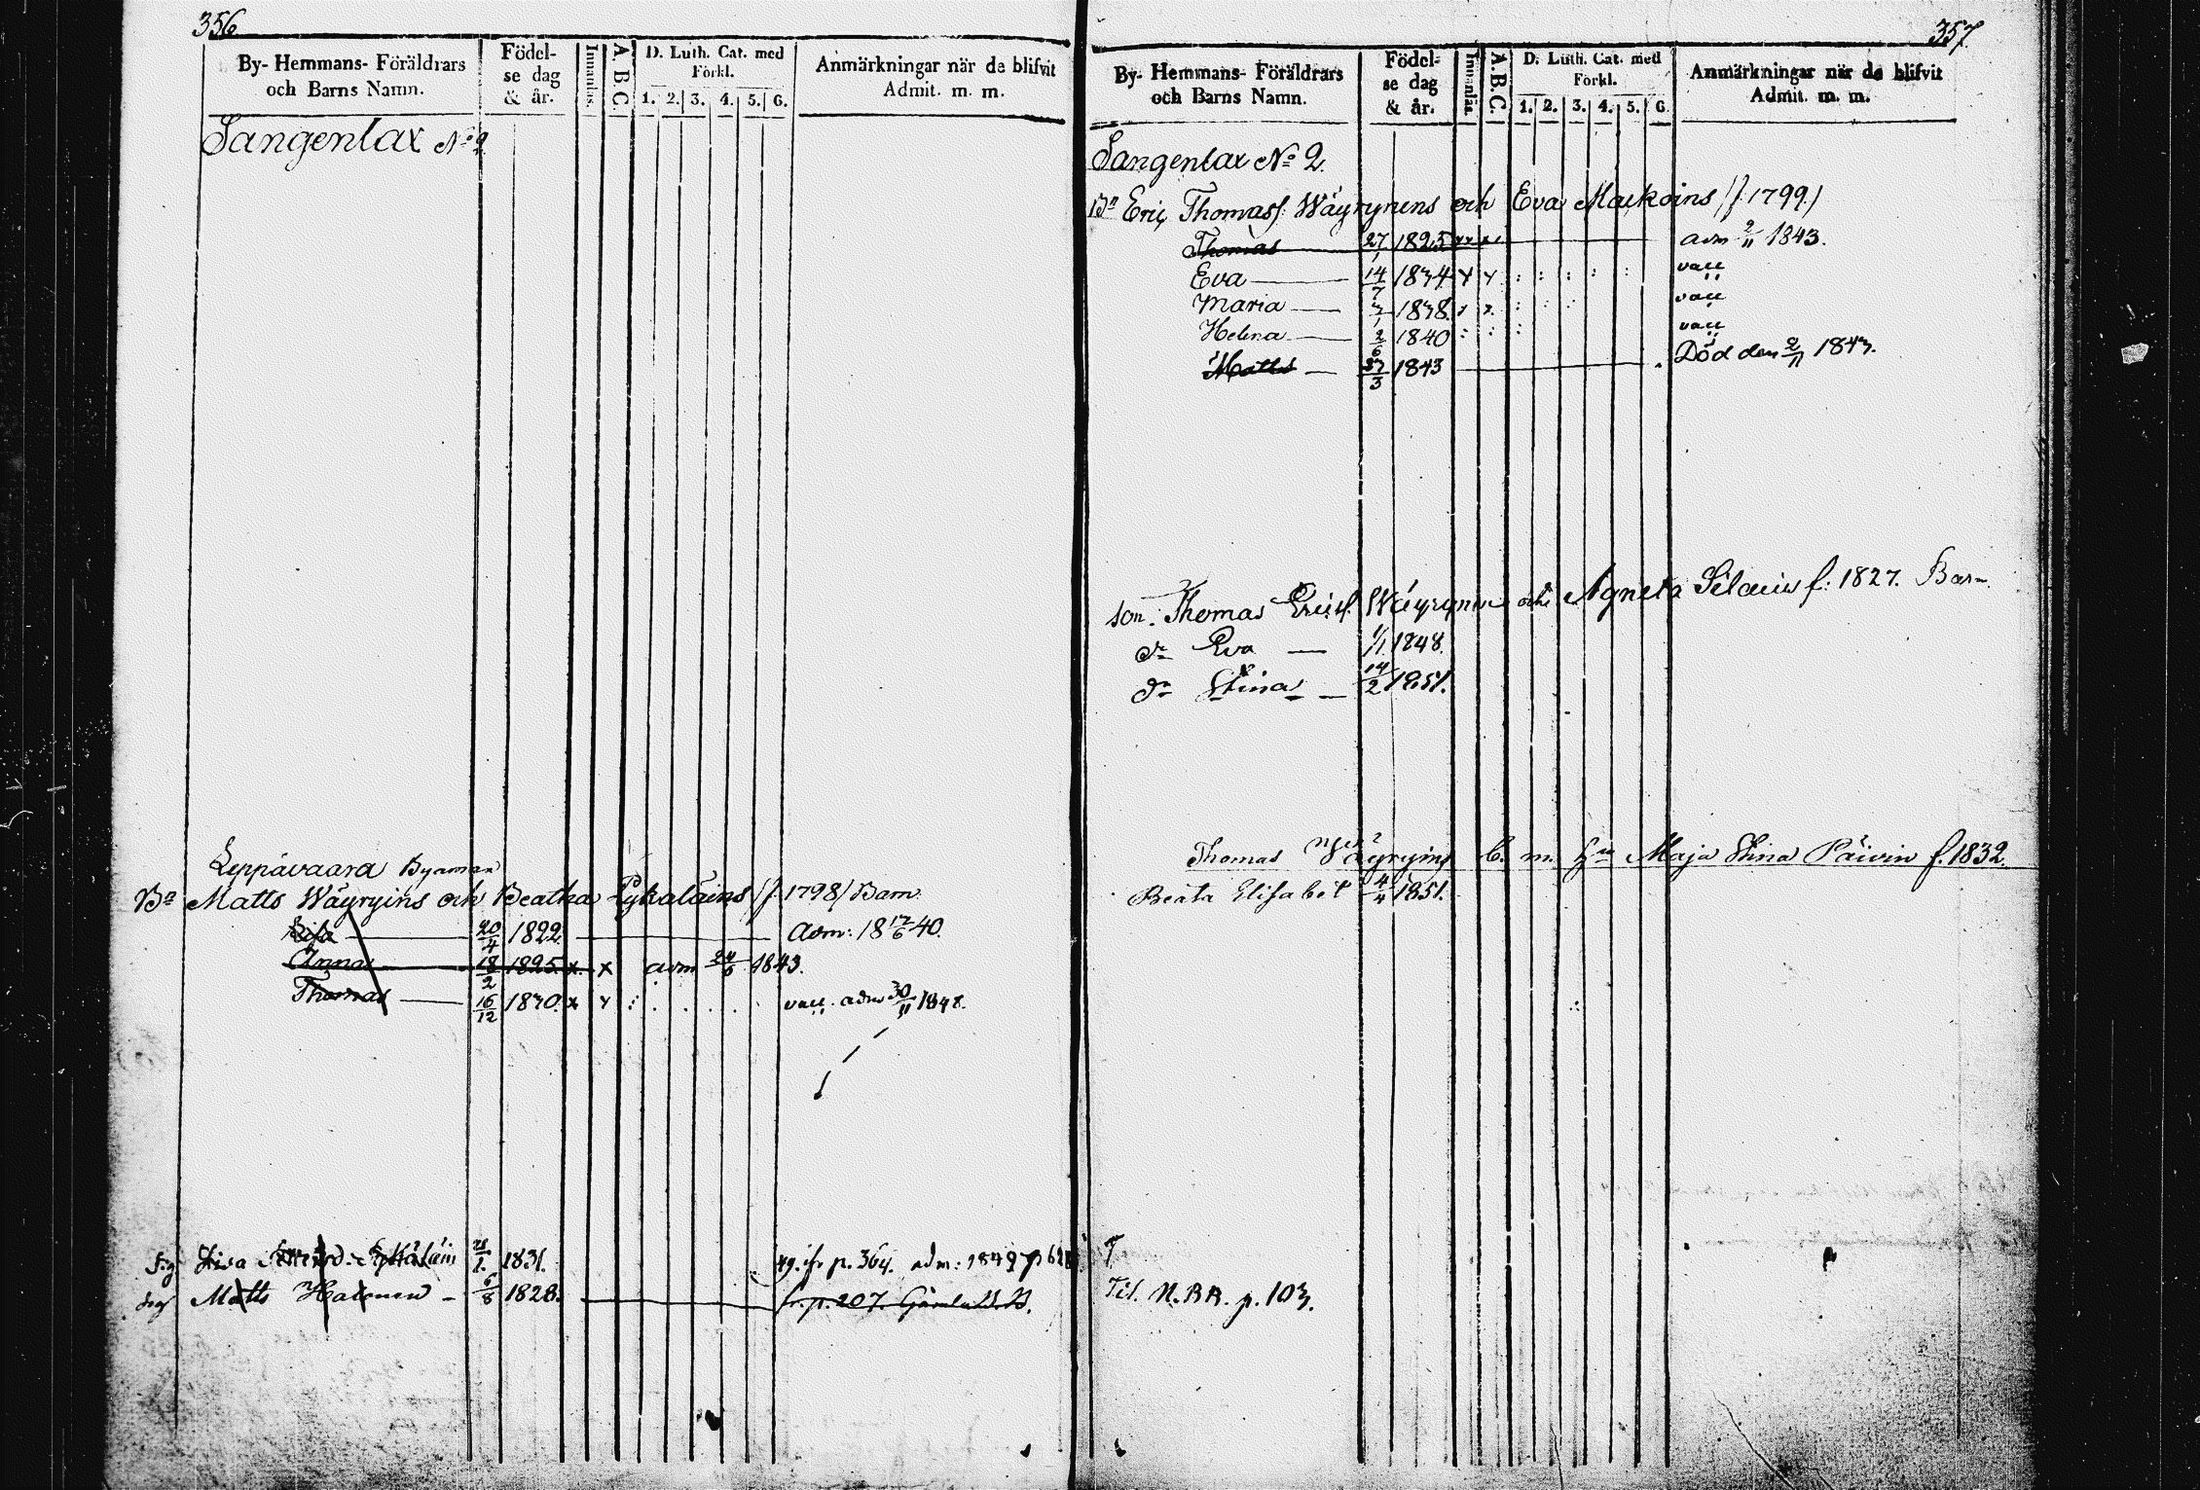 356
By- Hemmans- Föräldrars och Barns Namn.
Födel- se dag & år.
Innanläs.
A. B. C.
D. Luth. Cat. med Förkl.
1. 2. 3. 4. 5. 6.
Anmärkningar när de blifvit Admit. m. m.
Sangenlax No 2
Leppävaara
Bn Matts Wäyryins och Beatha Pykäläins (f. 1798) Barn
Lisa 20/4 1822. Adm: 18 17/6 40.
Anna 18/2 1825. x x adm 24/6 1843.
Thomas 16/12 1830. x x vacc. adm 30/11 1848.
Lisa 1831. p. 364. adm: 1849
Matts Halonen 6/8 1828. fr. p. 207. Gamla K.B.
357
By- Hemmans- Föräldrars och Barns Namn.
Födel- se dag & år.
Innanläs.
A. B. C.
D. Luth. Cat. med Förkl.
1. 2. 3. 4. 5. 6
Anmärkningar när de blifvit Admit. m. m.
Sangenlax No 2.
Bn Eric Thomass. Wäyrynens och Eva Maukoins (f. 1799.)
Thomas 27/1 1825 adm 2/11 1843.
Eva 14/7 1834 vacc
Maria 3/1 1838. vacc
Helena 2/6 1840 vacc
Matts 1843 Död den 2/11 1843.
son. Thomas Ericss. Wäyrynen och Agneta f. 1827. Barn
dr Eva 1/1 1848.
dr Stina 14/2 1851.
Thomas Wäyryins b. m. Maja Stina Päivin f. 1832.
Beata Elisabet 4/4 1851.
Til. N.BB. p. 103.